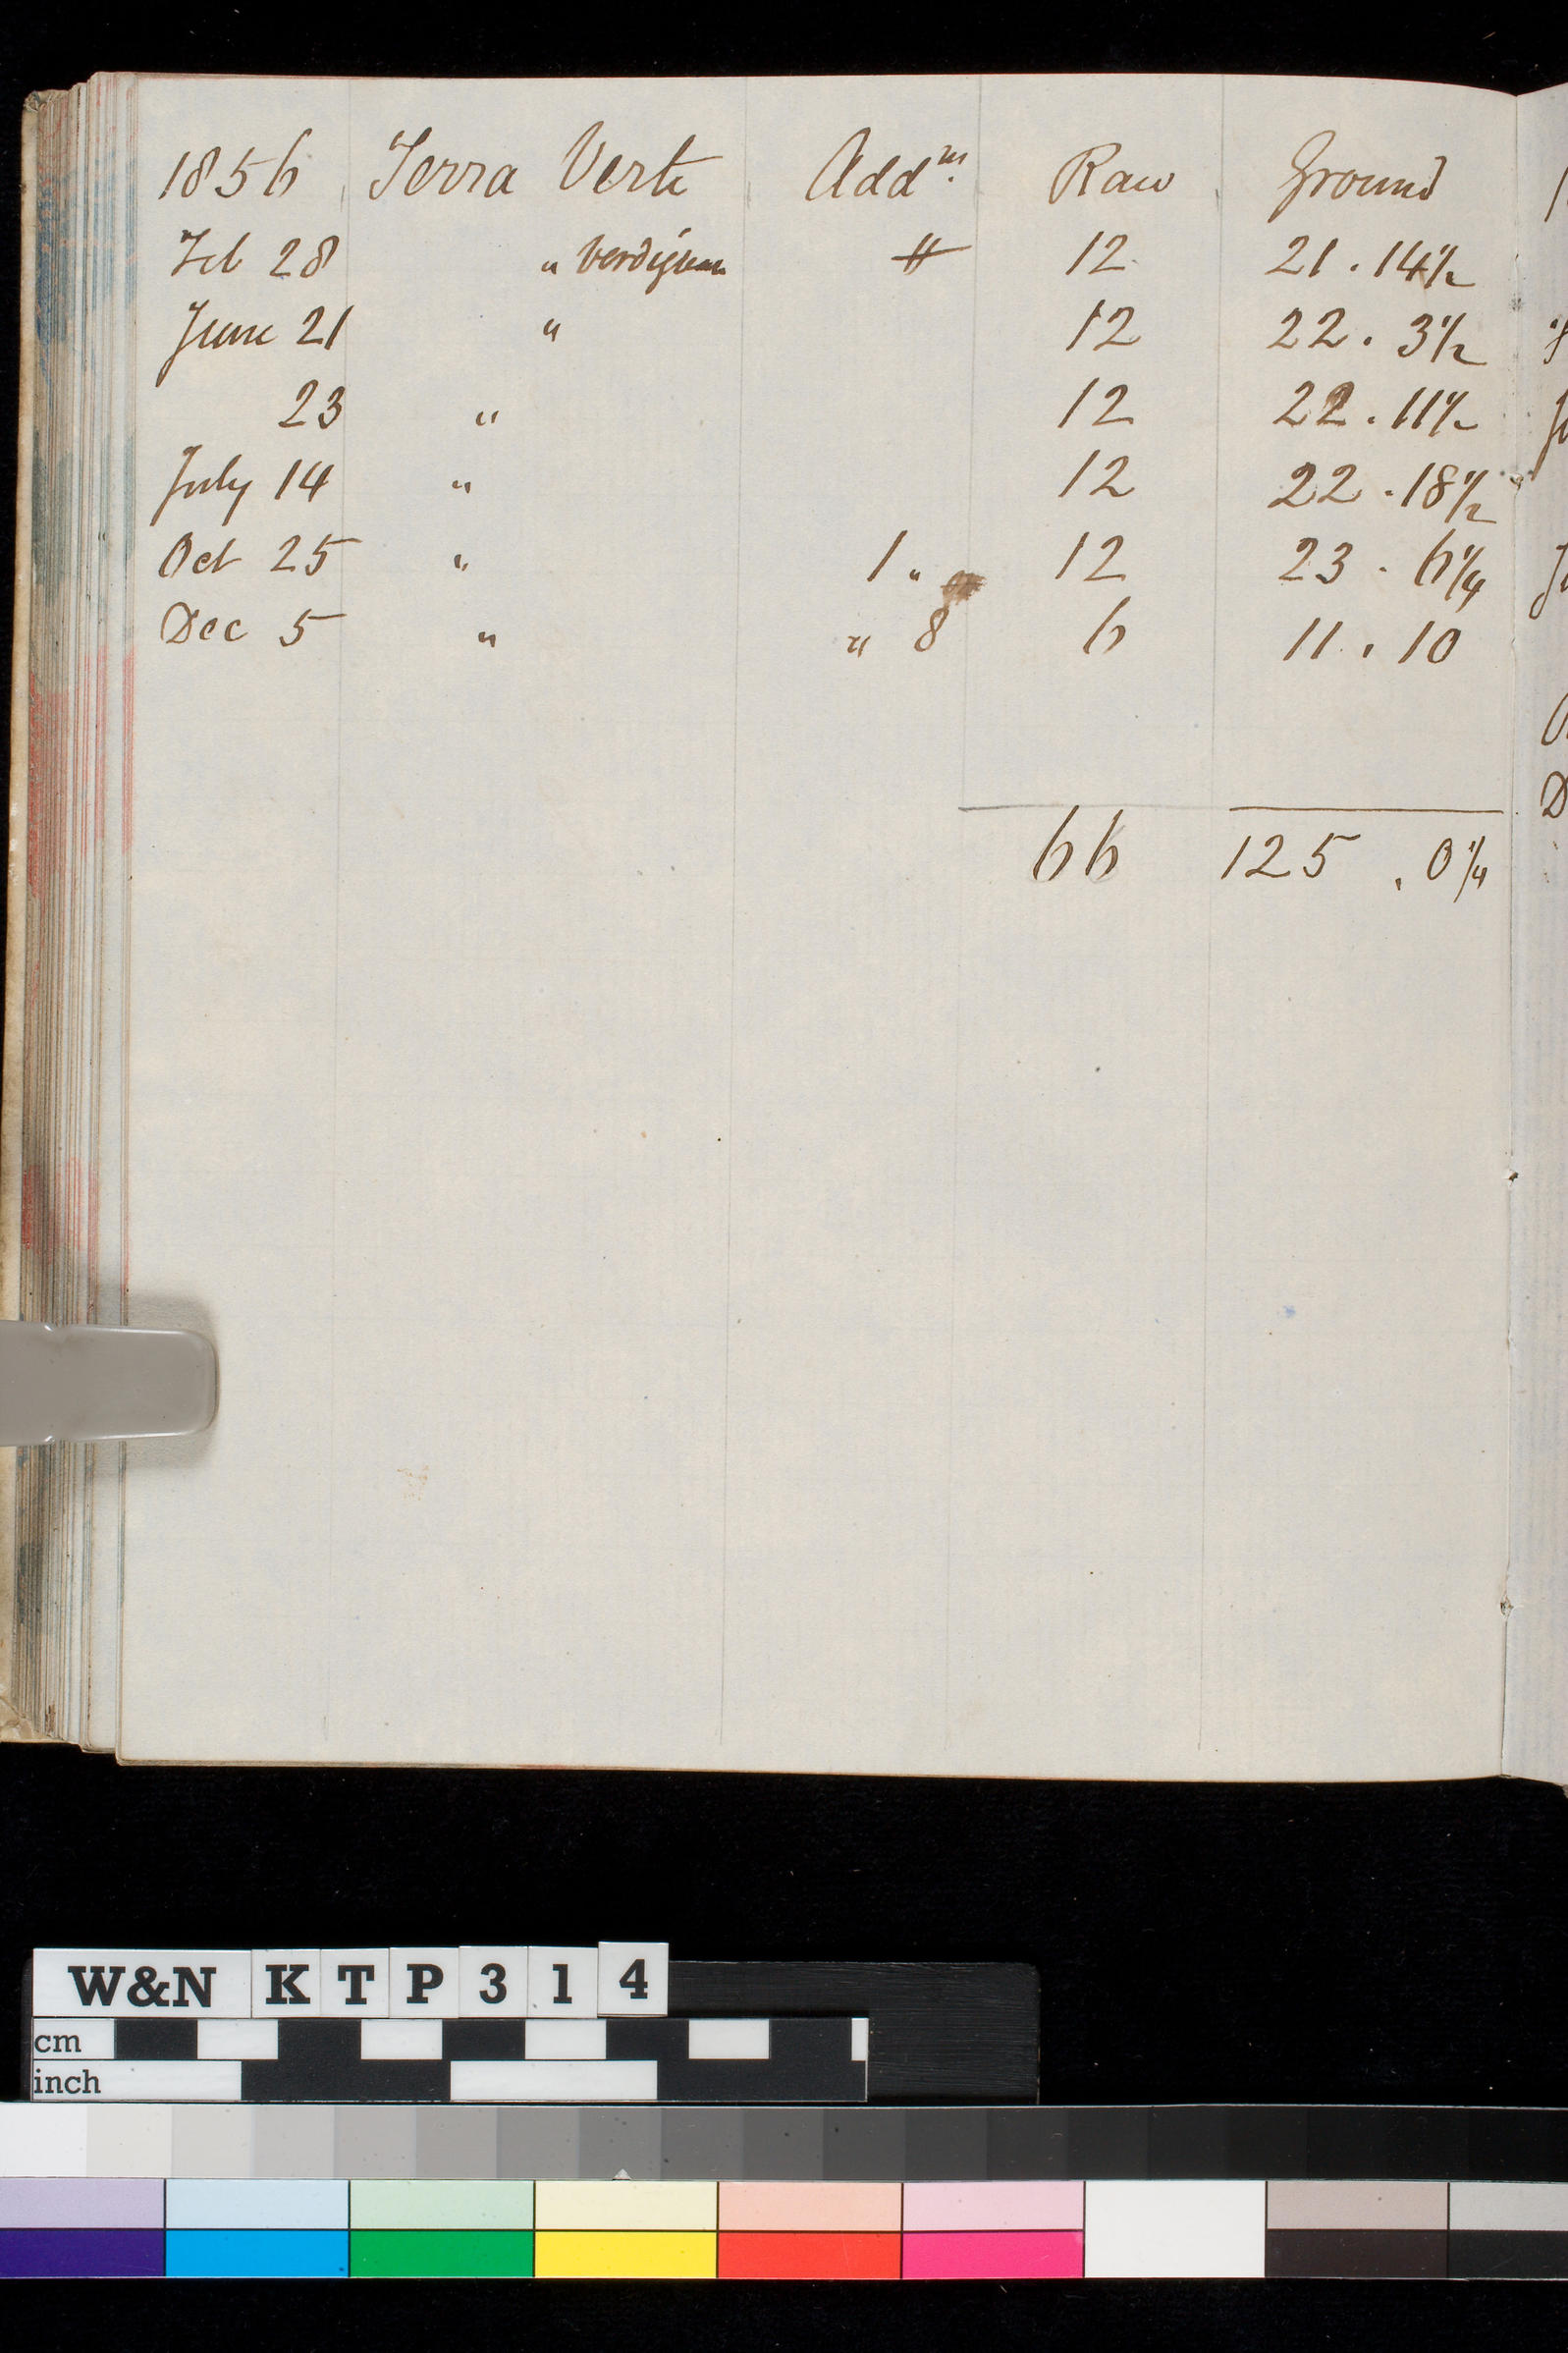 1856 Terra Verte Addns. Raw Ground
Feb 28 " 12 21 . 14 1/2
June 21 " 12 22 . 3 1/2
23 " 12 22 . 11 1/2
July 14 " 12 22 . 18 1/2
Oct 25 " 1 " 12 23 . 6 1/4
Dec 5 " " 8 6 11 . 10
66 125 . 0 1/4
W&N KTP314
cm
inch